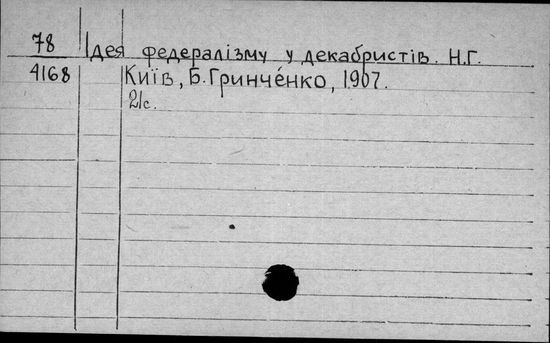 78 Ідея федералізму у декабристів. Н.Г.
4168 Київ, Б. Грінче́нко, 1907.
21с.